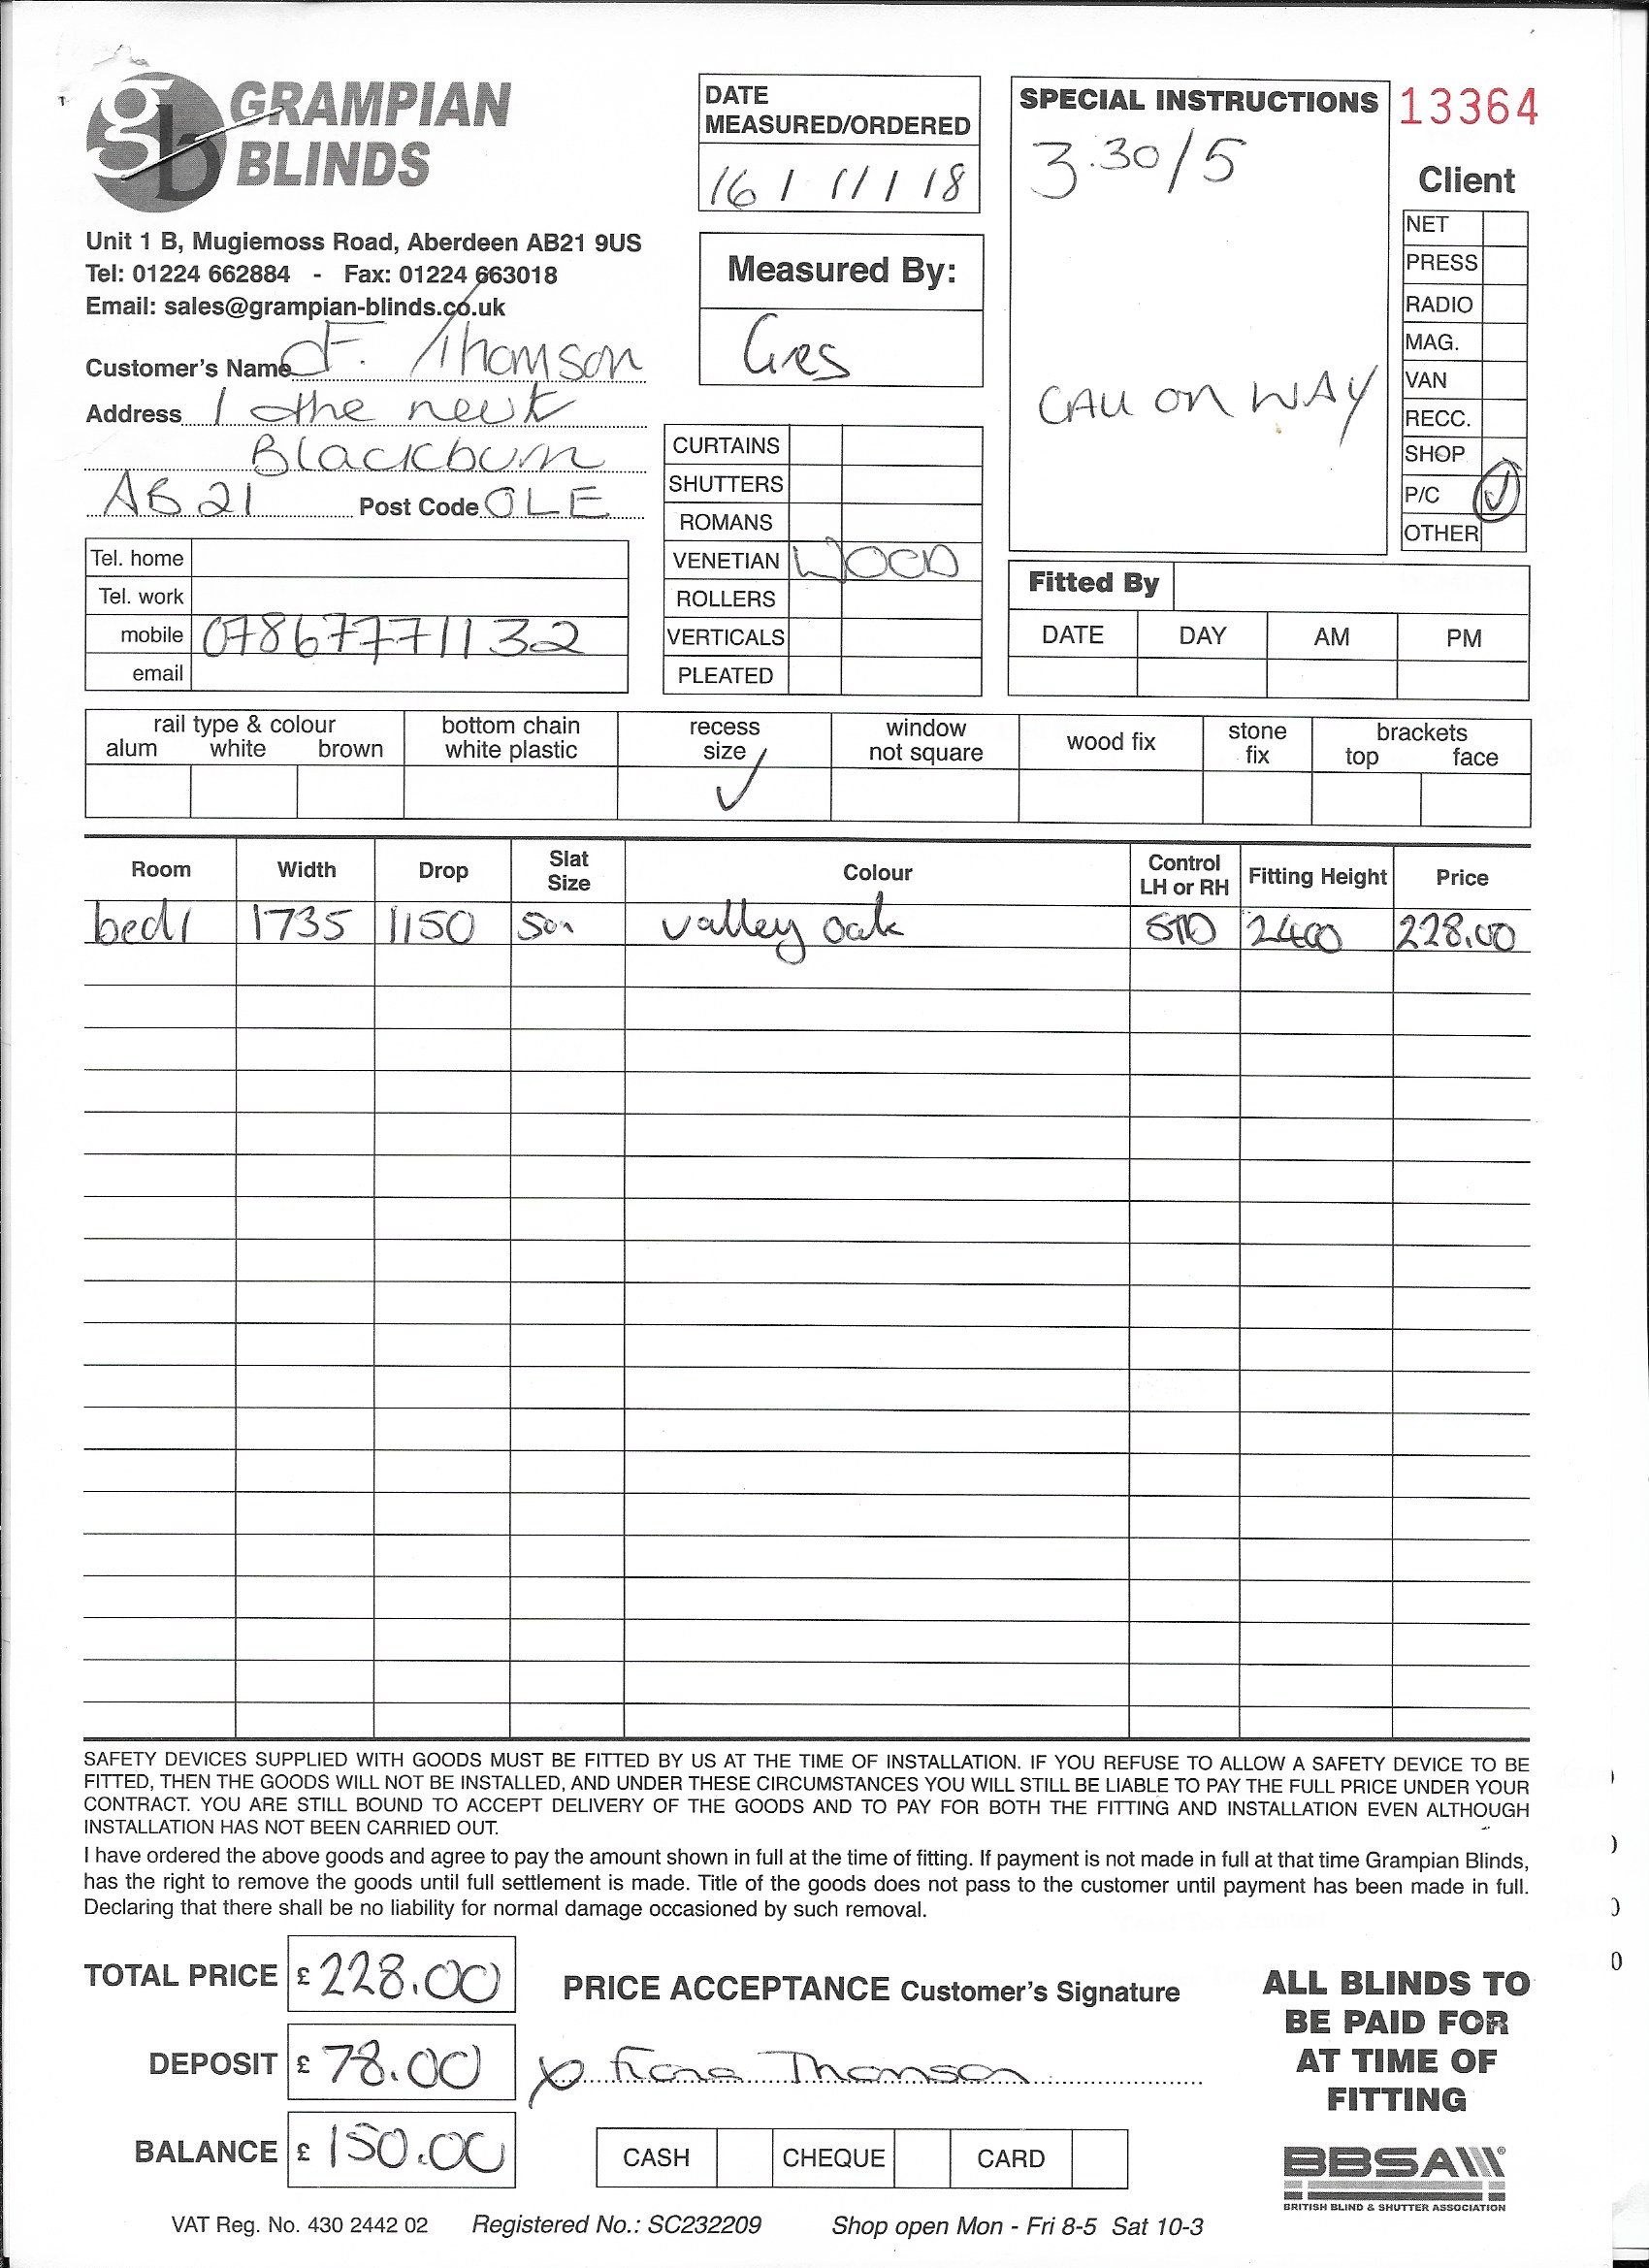 gb GRAMPIAN BLINDS
Unit 1 B, Mugiemoss Road, Aberdeen AB21 9US
Tel: 01224 662884 - Fax: 01224 663018
Email: sales@grampian-blinds.co.uk
Customer's Name F. Thomson
Address 1 the neuk
Blackburn
AB21 Post Code 0LE
Tel. home
Tel. work
mobile 07867771132
email
DATE MEASURED/ORDERED
16 / 11 / 18
Measured By:
CURTAINS
SHUTTERS
ROMANS
VENETIAN WOOD
ROLLERS
VERTICALS
PLEATED
SPECIAL INSTRUCTIONS
3.30/5
CALL ON WAY
13364
Client
NET
PRESS
RADIO
MAG.
VAN
RECC.
SHOP
P/C ✓
OTHER
Fitted By
DATE DAY AM PM
rail type & colour bottom chain recess window wood fix stone brackets
alum white brown white plastic size not square fix top face
✓
Room Width Drop Slat Size Colour Control LH or RH Fitting Height Price
bed1 1735 1150 valley oak STD 2400 228.00
SAFETY DEVICES SUPPLIED WITH GOODS MUST BE FITTED BY US AT THE TIME OF INSTALLATION. IF YOU REFUSE TO ALLOW A SAFETY DEVICE TO BE
FITTED, THEN THE GOODS WILL NOT BE INSTALLED, AND UNDER THESE CIRCUMSTANCES YOU WILL STILL BE LIABLE TO PAY THE FULL PRICE UNDER YOUR
CONTRACT. YOU ARE STILL BOUND TO ACCEPT DELIVERY OF THE GOODS AND TO PAY FOR BOTH THE FITTING AND INSTALLATION EVEN ALTHOUGH
INSTALLATION HAS NOT BEEN CARRIED OUT.
I have ordered the above goods and agree to pay the amount shown in full at the time of fitting. If payment is not made in full at that time Grampian Blinds,
has the right to remove the goods until full settlement is made. Title of the goods does not pass to the customer until payment has been made in full.
Declaring that there shall be no liability for normal damage occasioned by such removal.
TOTAL PRICE £ 228.00
DEPOSIT £ 78.00
BALANCE £ 150.00
PRICE ACCEPTANCE Customer's Signature
x Fiona Thomson
CASH CHEQUE CARD
ALL BLINDS TO
BE PAID FOR
AT TIME OF
FITTING
BBSA
BRITISH BLIND & SHUTTER ASSOCIATION
VAT Reg. No. 430 2442 02 Registered No.: SC232209 Shop open Mon - Fri 8-5 Sat 10-3